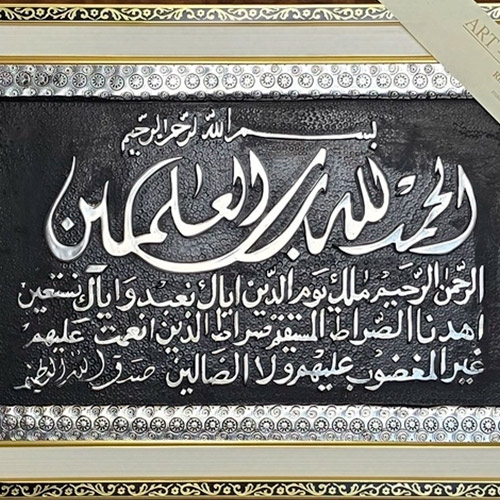 بسم الله الرحمن الرحيم
الحمد لله رب العلمين
الرحمن الرحيم ملك يوم الدين اياك نعبد واياك نستعين
اهدنا الصراط المستقيم صراط الذين انعمت عليهم
غير المغضوب عليهم ولا الضالين صدق الله العظيم
ART